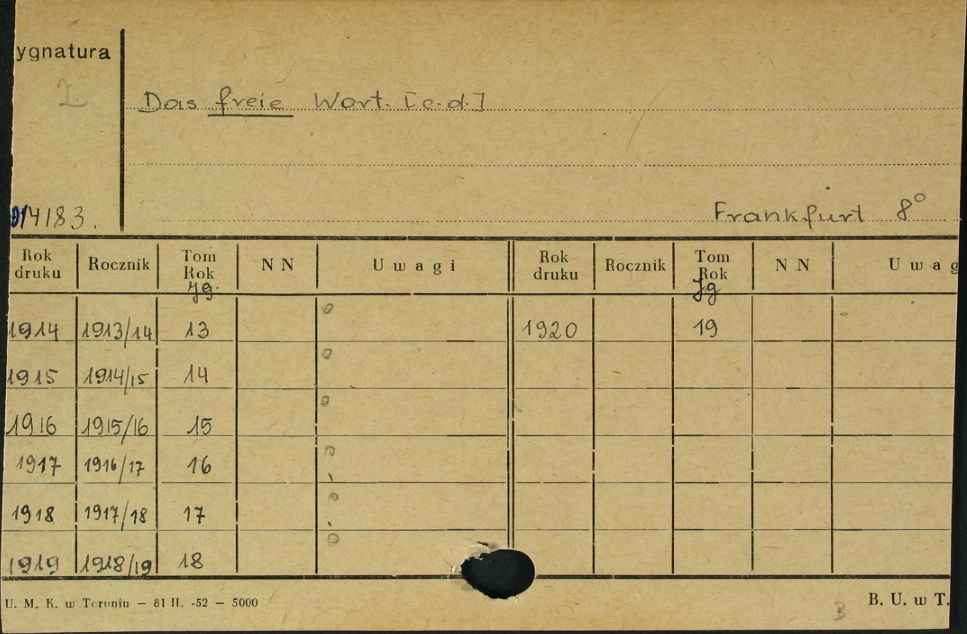 ygnatura
Z
Das freie Wort. [c.d.]
014183.
Frankfurt 8°
Rok druku Rocznik Tom Rok Jg. N N Uwagi Rok druku Rocznik Tom Rok Jg N N Uwag
1914 1913/14 13 o 1920 19
1915 1914/15 14 o
1916 1915/16 15 o
1917 1916/17 16 o
1918 1917/18 17 o
1919 1918/19 18 o
U. M. K. w Toruniu — 81 II. -52 — 5000
3
B. U. w T.